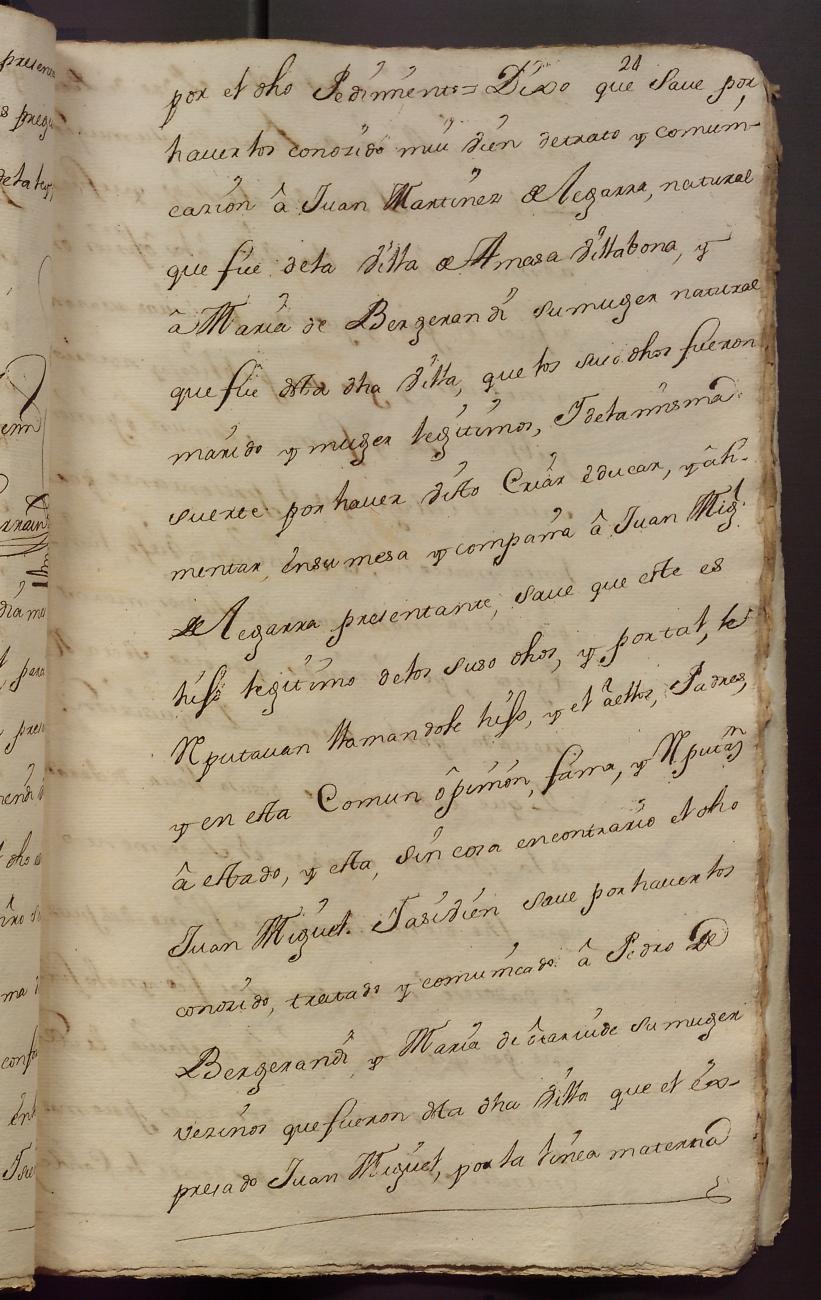 21
por el dho Pedimento = Dixo que save por
haverlos conozido mui bien detrato y comuni-
cazion â Juan Martinez de Legarra, natural
que fue dela Villa de Amasa Villabona, y
â Maria de Bergerandi su muger natural
que fue desta dha Villa, que los suso dhos fueron
marido y muger legitimos, I dela misma
suerte por haver visto Criar educar, y âli-
mentar, ensu mesa y compañia â Juan Migl.
de Legarra presentante, save que este es
hijo legitimo delos suso dhos, y por tal, le
Reputavan llamandole hijo, y el âellos, Padres,
y en esta Comun ôpinion, fama, y Reputazn
â estado, y esta, sin cosa encontrario el dho
Juan Miguel. Iasibien save por haverlos
conozido, tratado y comunicado â Pedro de
Bergerandi y Maria de ôtariude su muger
vezinos que fueron desta dha Villa que el êx-
presado Juan Miguel, por la linea materna